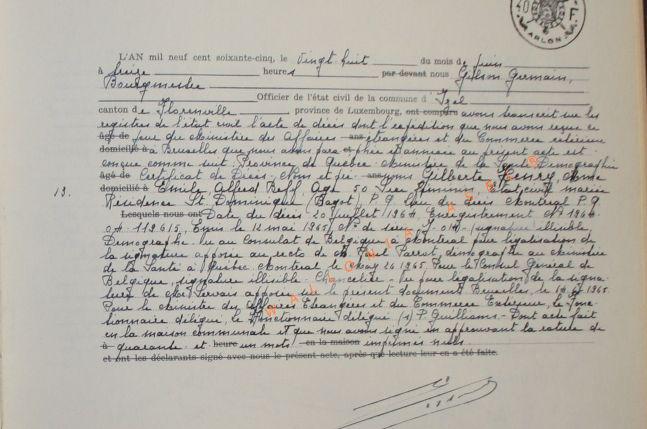 40 F
ARLON
L'AN mil neuf cent soixante-cinq, le vingt-huit du mois de juin
à seize heures par devant nous Gilson Germain,
Bourgmestre
Officier de l'état civil de la commune d'Izel
canton de Florenville province de Luxembourg, ont comparu avons transcrit sur les
registres de l'état civil l'acte de décès dont l'expédition que nous avons reçue ce
âgé de jour du Ministère des Affaires ans étrangères et du Commerce extérieur
domicilié à Bruxelles que nous avons paraphée et annexée au présent acte est
conçue comme suit Province de Québec Ministère de la Santé Démographie
âgé de Certificat de Décès Nom et ans Gilberte Henry
13. domicilié à Emile Alfred Age 50 Sexe féminin Etat civil mariée
Résidence St. Dominique (Bagot) P.Q. lieu du décès Montréal P.Q.
Lesquels nous ont Date du décès 20 juillet 1964. Enregistrement N° 1964
04-112615. Emis le 12 mai 1965 N° de (signature illisible)
Démographe. Vu au Consulat de Belgique à Montréal pour légalisation de
la signature apposée au recto de M. Paul Parrot, démographe au Ministère
de la Santé à Québec Montréal le May 26 1965 Pour le Consul Général de
Belgique, signature illisible Chancelier. Vu pour légalisation de la signa-
ture de apposée sur le présent document Bruxelles, le 1965
Pour le Ministre des Affaires Etrangères et du Commerce Extérieur, le Fonc-
tionnaire délégué, le fonctionnaire délégué (s) P. Guilliams. Dont acte fait
en la maison communale et que nous avons signé en approuvant la rature de
à quarante et heure un mots en la maison imprimés nuls.
et ont les déclarants signé avec nous le présent acte, après que lecture leur en a été faite.
WALLONIA ASBL